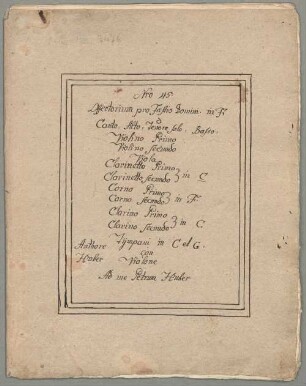 Nro 45
Offertorium pro Festo Domin. in F.
a
Canto. Alto. Tenore solo. Basso.
Violino Primo
Violino secundo
Viola
Clarinetto Primo
Clarinetto secundo } in C
Corno Primo
Corno secundo } in F.
Clarino Primo
Clarino secundo } in C
Tympani in C et G.
con
Violone
Authore
Huber
Ab me Petrum Huber